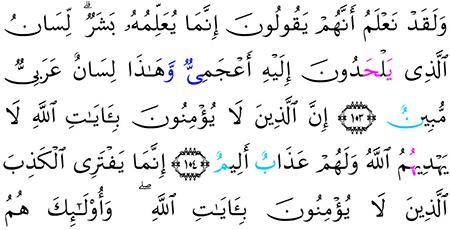 وَلَقَدْ نَعْلَمُ أَنَّهُمْ يَقُولُونَ إِنَّمَا يُعَلِّمُهُۥ بَشَرٌ ۗ لِّسَانُ
ٱلَّذِى يَلْحَدُونَ إِلَيْهِ أَعْجَمِىٌّ وَّهَـٰذَا لِسَانٌ عَرَبِىٌّ
مُّبِينٌ ١٠٣ إِنَّ ٱلَّذِينَ لَا يُؤْمِنُونَ بِـَٔايَـٰتِ ٱللَّهِ لَا
يَهْدِيهُمُ ٱللَّهُ وَلَهُمْ عَذَابٌ أَلِيمٌ ١٠٤ إِنَّمَا يَفْتَرِى ٱلْكَذِبَ
ٱلَّذِينَ لَا يُؤْمِنُونَ بِـَٔايَـٰتِ ٱللَّهِ ۖ وَأُو۟لَـٰٓئِكَ هُمُ